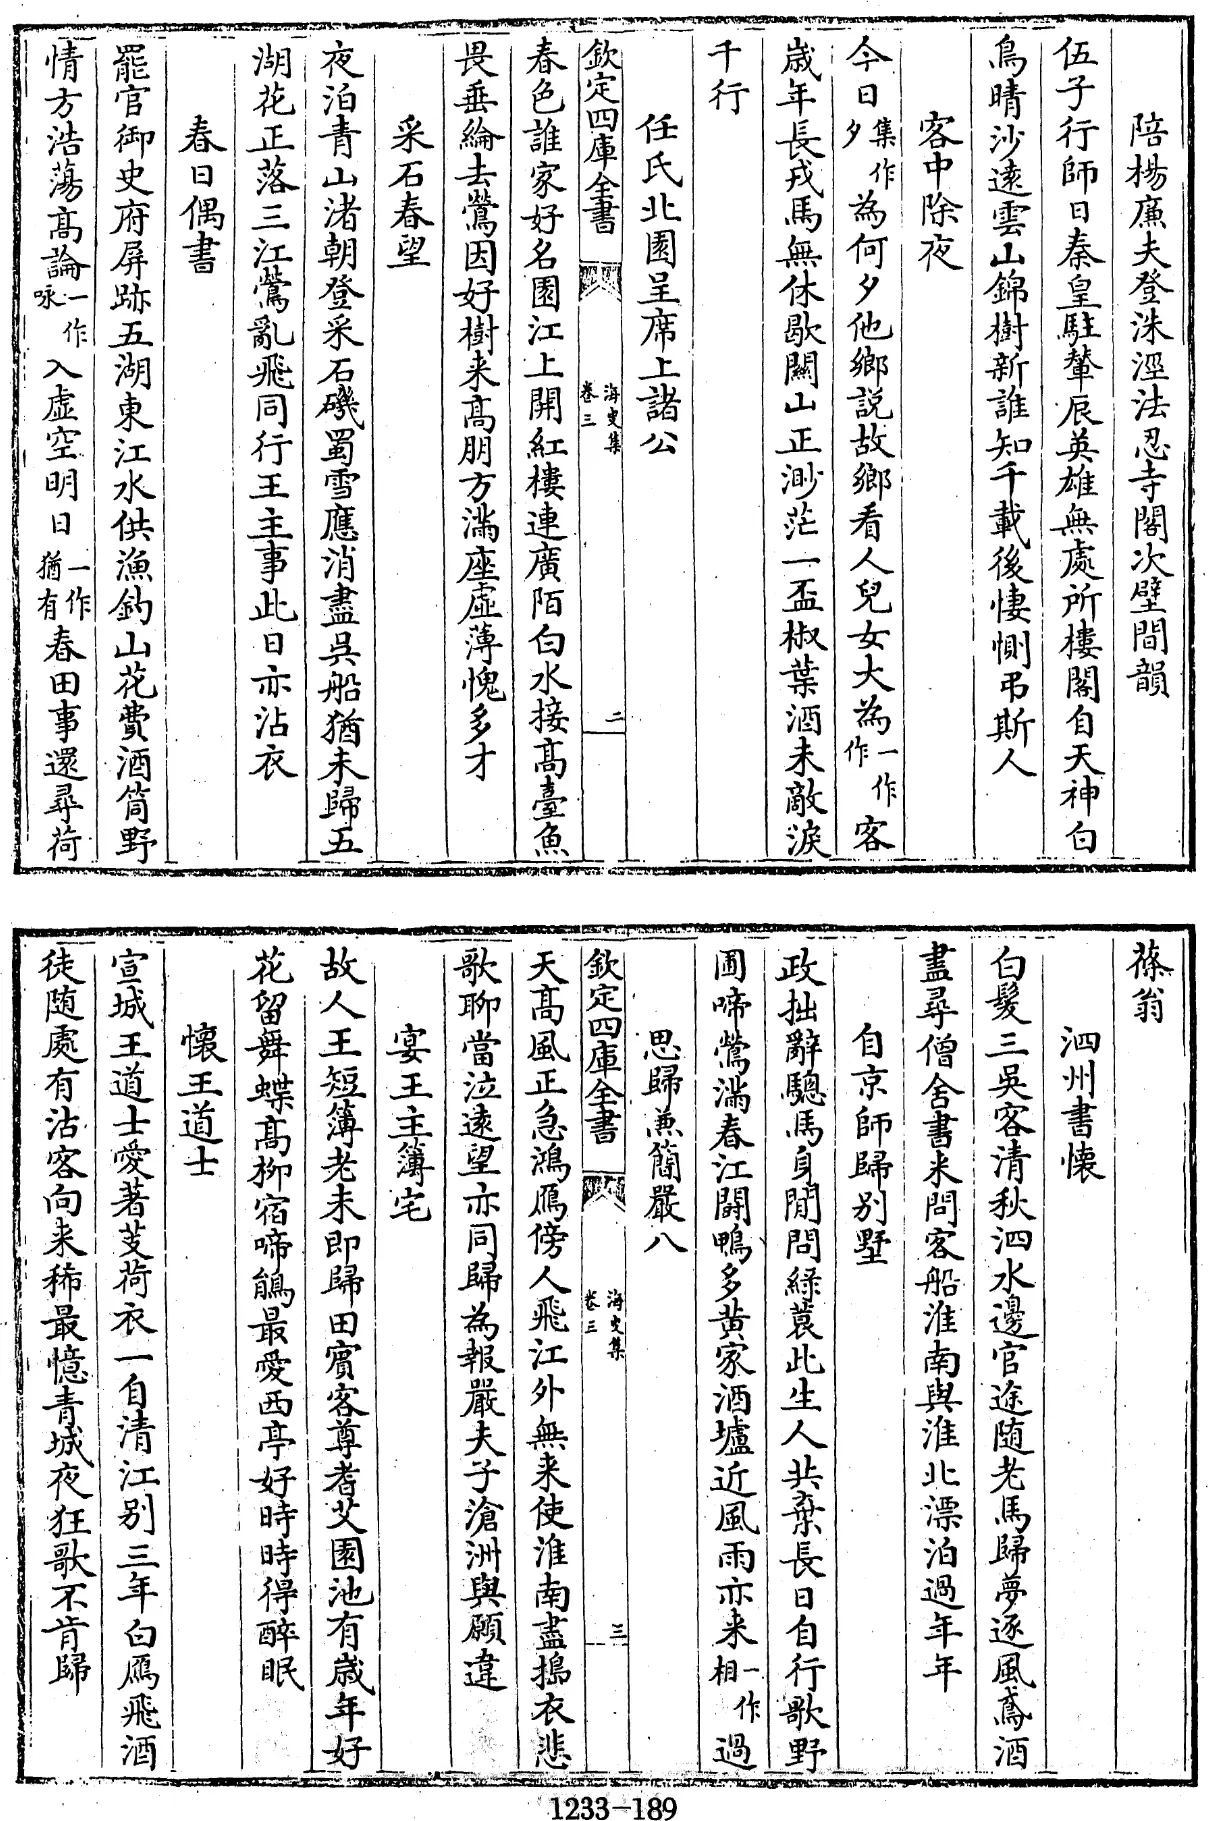 陪楊廉夫登洙涇法忍寺閣次壁間韻
伍子行師日秦皇駐輦辰英雄無處所樓閣自天神白
鳥晴沙遠雲山錦樹新誰知千載後悽惻弔斯人
客中除夜
今日集作夕為何夕他鄉説故鄉看人兒女大為一作作客
歳年長戎馬無休歇關山正渺茫一盃椒葉酒未敵淚
千行
任氏北園呈席上諸公
欽定四庫全書
海叟集
卷三
二
春色誰家好名園江上開紅樓連廣陌白水接髙臺魚
畏垂綸去鶯因好樹来髙朋方滿座虛薄愧多才
采石春望
夜泊青山渚朝登采石磯蜀雪應消盡吳船猶未歸五
湖花正落三江鶯亂飛同行王主事此日亦沾衣
春日偶書
罷官御史府屏跡五湖東江水供漁釣山花費酒筒野
情方浩蕩髙論一作咏入虛空明日一作猶有春田事還尋荷
蓧翁
泗州書懐
白髮三吳客清秋泗水邊官途随老馬歸夢逐風鳶酒
盡尋僧舍書来問客船淮南與淮北漂泊過年年
自京師歸別墅
政拙辭驄馬身閒問緑蓑此生人共棄長日自行歌野
圃啼鶯滿春江鬪鴨多黄家酒壚近風雨亦来一作相過
思歸兼簡嚴八
欽定四庫全書
海叟集
卷三
三
天髙風正急鴻鴈傍人飛江外無来使淮南盡搗衣悲
歌聊當泣逺望亦同歸為報嚴夫子滄洲與願違
宴王主簿宅
故人王短簿老未即歸田賓客尊耆艾園池有歳年好
花留舞蝶髙柳宿啼鵑最愛西亭好時時得醉眠
懐王道士
宣城王道士愛著芰荷衣一自清江別三年白鴈飛酒
徒随處有沽客向来稀最憶青城夜狂歌不肯歸
1233-189